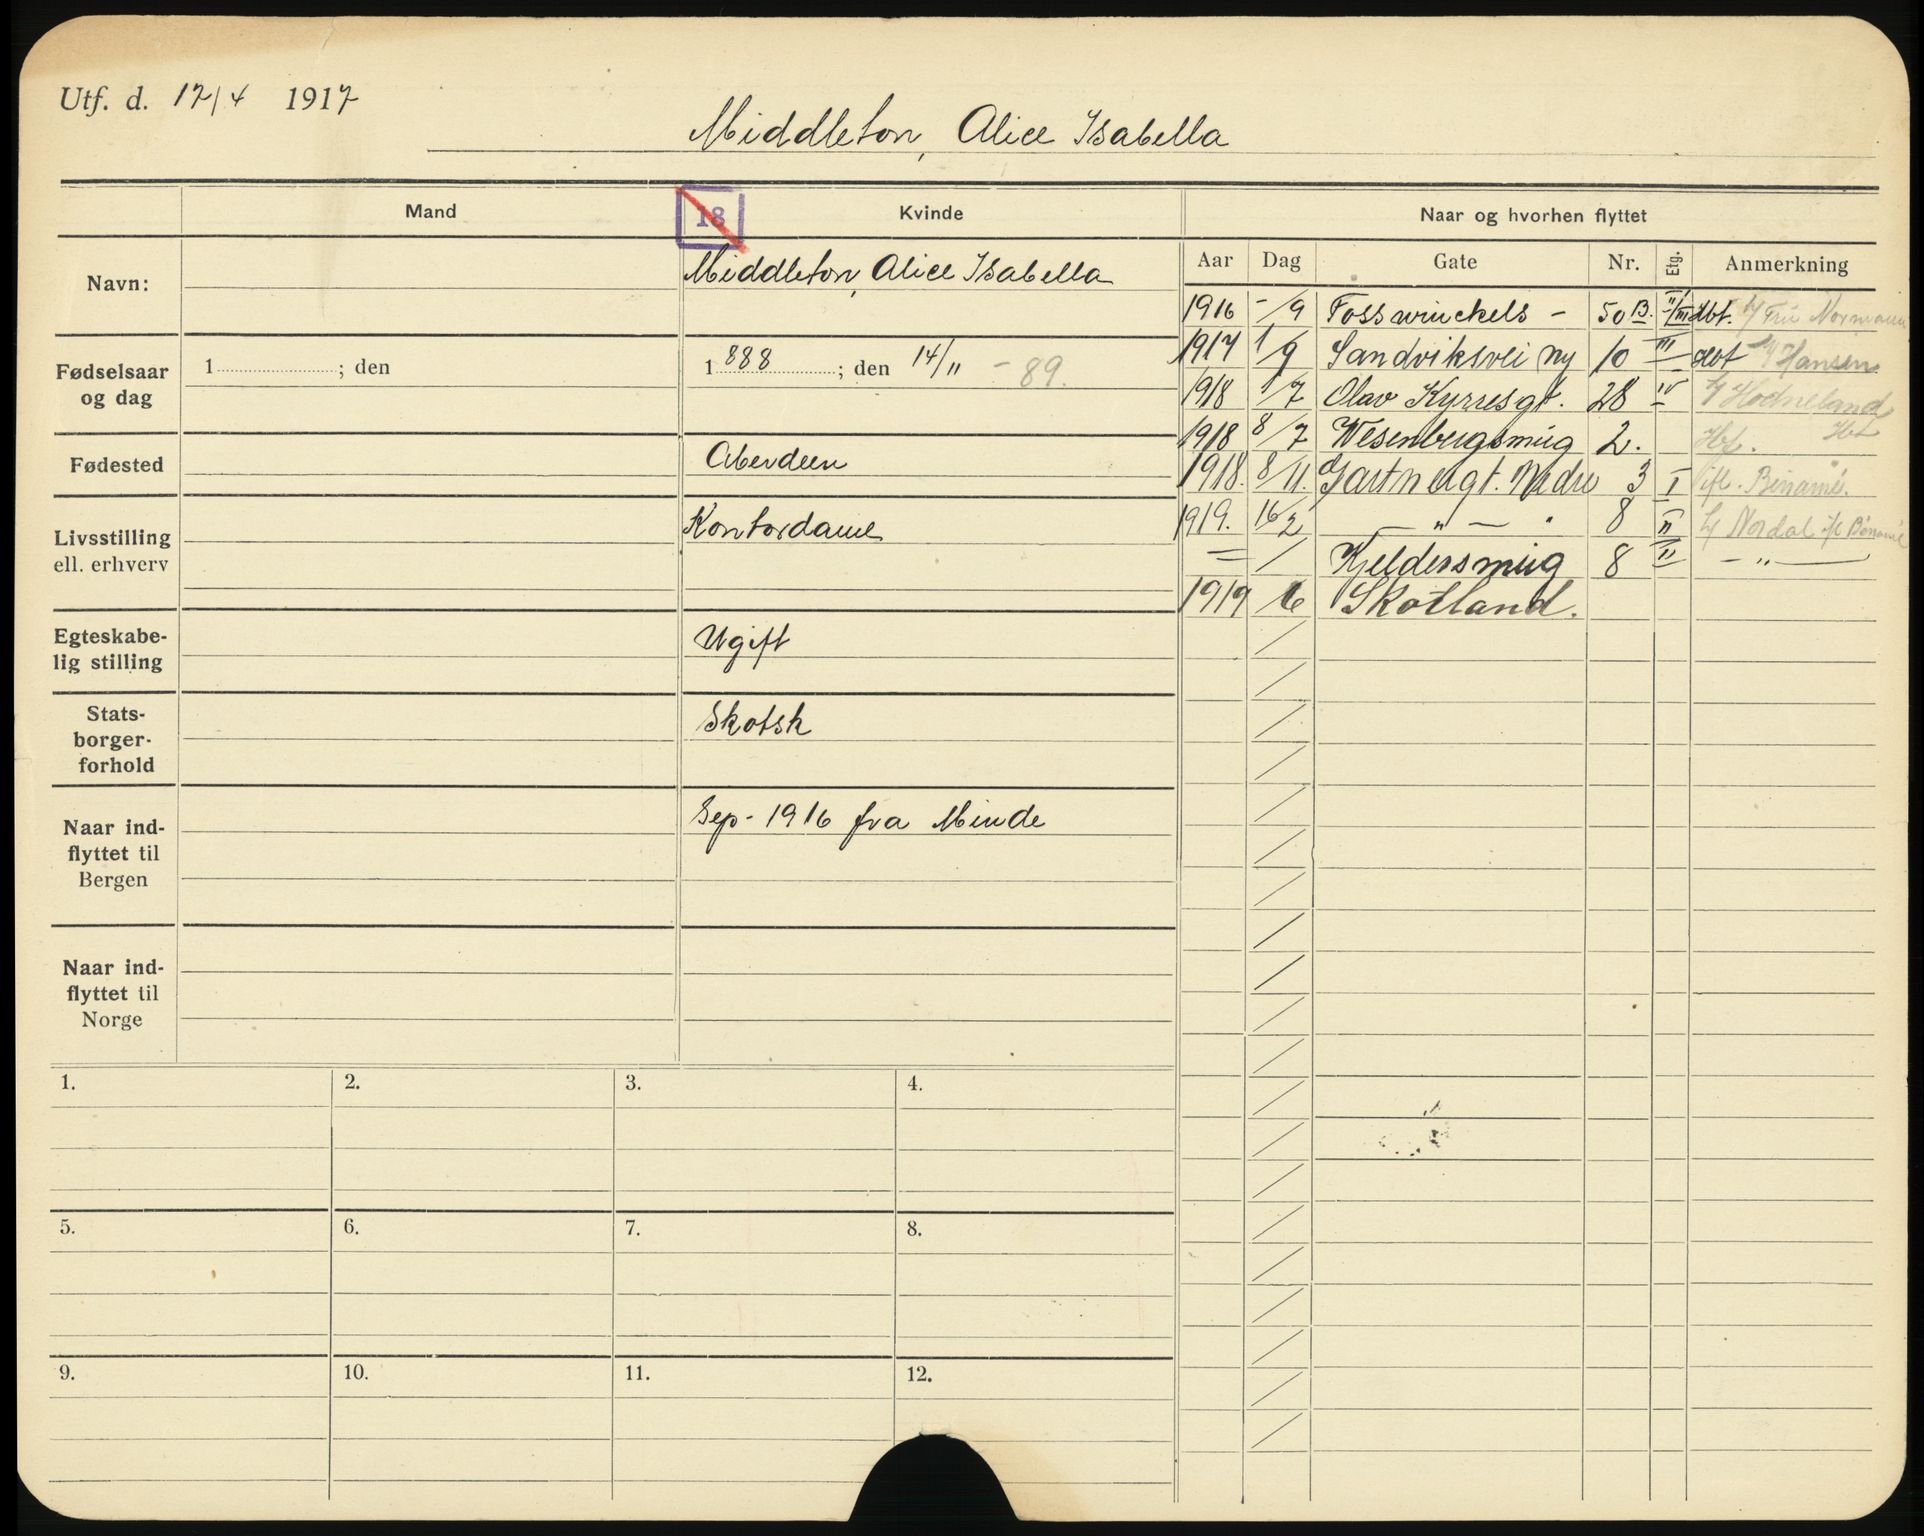 Utf. d. 17/4 1917
Middleton, Alice Isabella
Mand
18
Kvinde
Naar og hvorhen flyttet
Navn:
Middleton, Alice Isabella
Fødselsaar
og dag
1 ; den
1 888 ; den 14/11 - 89.
Fødested
Aberdeen
Livsstilling
ell. erhverv
Kontordame
Egteskabe-
lig stilling
Ugift
Stats-
borger-
forhold
Skotsk
Naar ind-
flyttet til
Bergen
Sep- 1916 fra Minde
Naar ind-
flyttet til
Norge
Aar Dag Gate Nr. Etg. Anmerkning
1916 -/9 Fosswinckels - 50 B. II/III dbt. h/ Fru Normann
1917 1/9 Sandviksvei ny 10 III dbt h/ Hansen
1918 1/7 Olav Kyrresgt. 28 IV h/ Hodneland
1918 8/7 Wesenbergsmug 2. Hbt
1918. 8/11. Gartnergt. Nedre 3 I
1919. 16/2 — " — " 8 II h/ Nordal
= / Kjeldersmug 8 II - " -
1919 /6 Skotland.
1.
2.
3.
4.
5.
6.
7.
8.
9.
10.
11.
12.